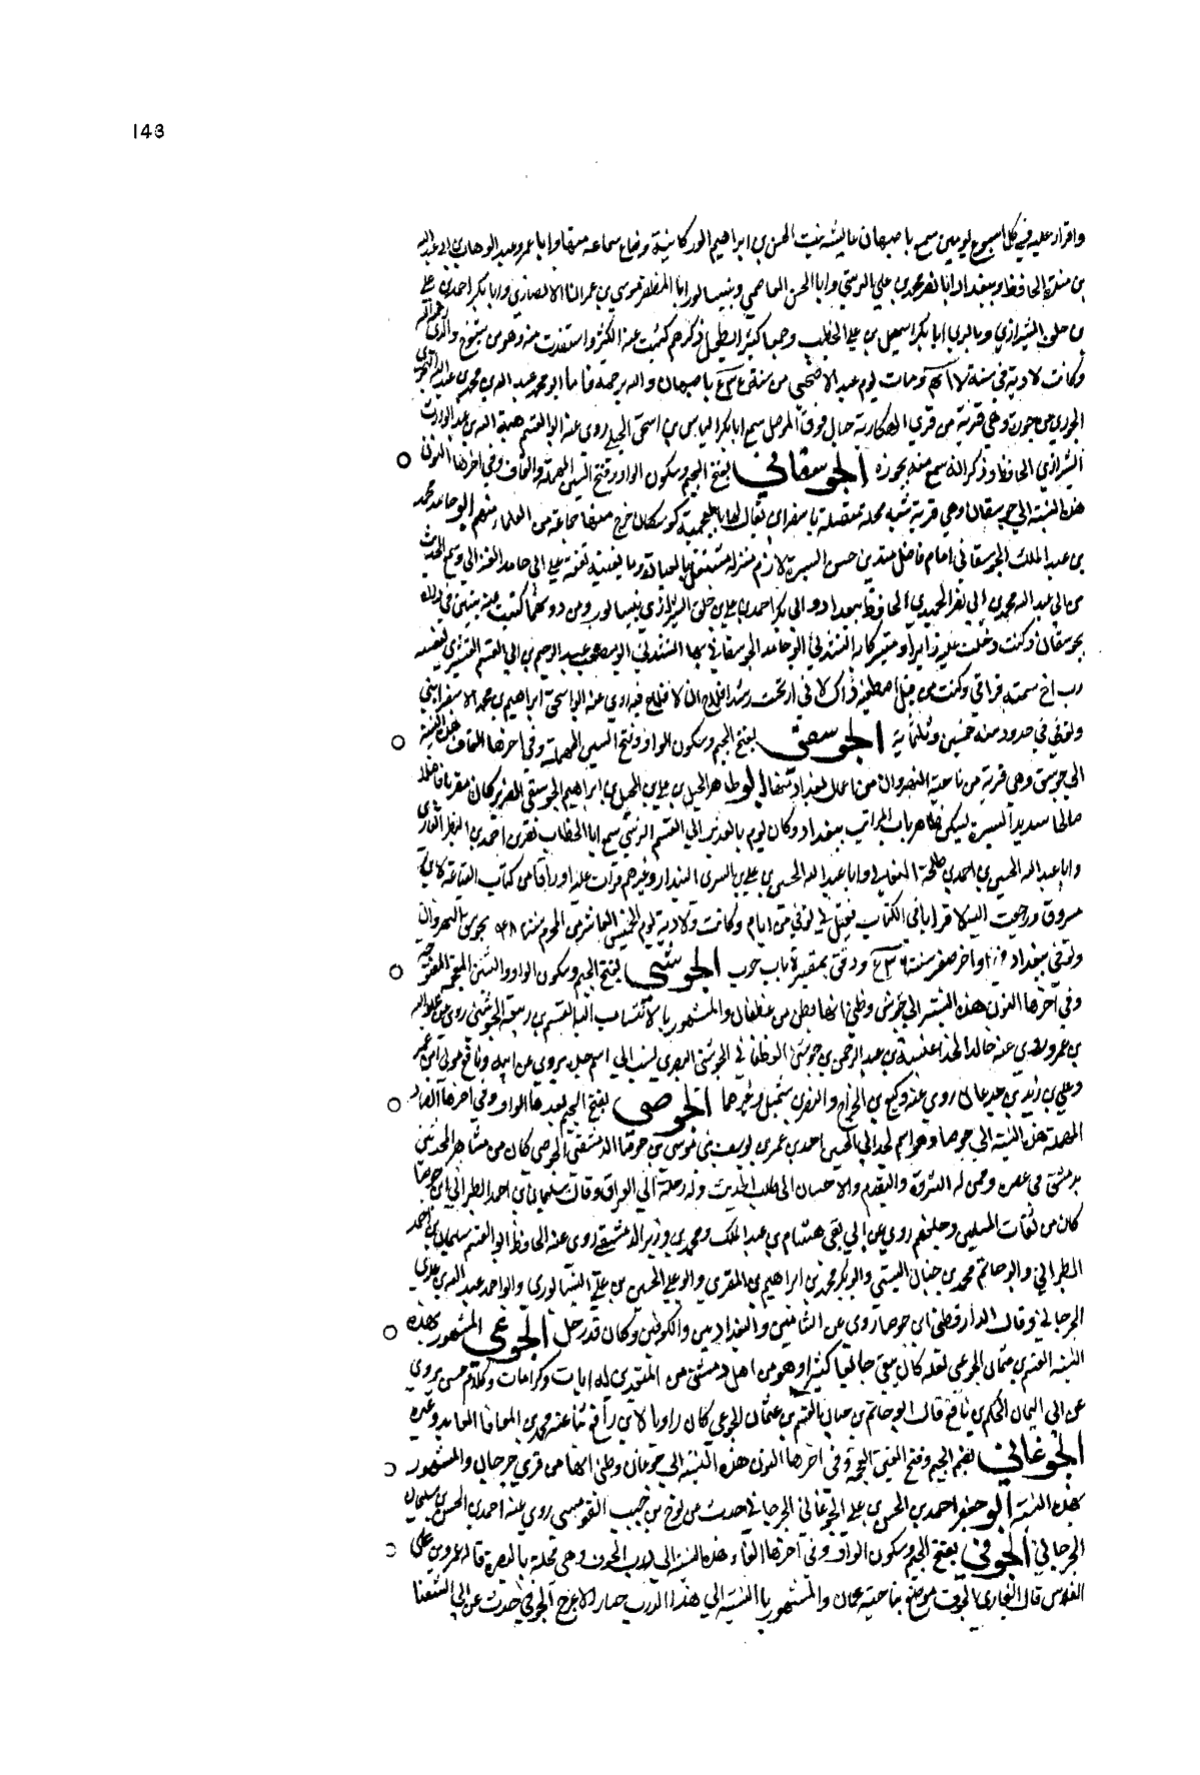 143
واقرا عليه في كل اسبوع يومين سمع باصبهان عايشه بنت الحسن بن ابراهيم الوركانية وضاع سماعه منها وابا عمرو عبد الوهاب بن ابي عبد الله
بن مندة الحافظ وببغداد ابا نصر محمد بن علي وابا الحسن العاصمي وبنيسابور ابا المظفر موسى بن عمران الانصاري وابا بكر احمد بن علي
بن خلف الشيرازي وبالري ابا بكر اسمعيل بن علي الخطيب وجمعا كثيرا يطول ذكرهم كتبت عنه الكثير واستفدت منه وهو من شيوخ والدي رحمه الله
وكانت ولادته في سنة ومات يوم عيد الاضحى من سنة باصبهان والله يرحمه فاما ابو محمد عبد الله بن محمد بن عبد الله
الجوري من جورة وهي قرية من قرى الهكارية جبال فوق الموصل سمع ابا بكر الياس بن اسحق الجبلي روى عنه ابو القسم هبة الله بن عبد الوارث
الشيرازي الحافظ وذكر انه سمع منه بجورة الجوسقاني بفتح الجيم وسكون الواو وفتح السين المهملة والقاف وفي اخرها النون
هذه النسبة الى جوسقان وهي قرية شبه محلة متصلة باسفراين يقال لها بالعجمية كوسكان خرج منها جماعة من العلماء منهم ابو حامد محمد
بن عبد الملك الجوسقاني امام فاضل متدين حسن السيرة لازم منزله مشتغل بالعبادة وما يعنيه تفقه على ابي حامد الغزالي وسمع الحديث
من ابي عبد الله محمد بن ابي نصر الحميدي الحافظ ببغداد وابي بكر احمد بن علي بن خلف الشيرازي بنيسابور ومن دونهما كتبت عنه بيتين في
بجوسقان وكنت دخلت عليه زايرا ومتبركا به انشدني ابو حامد الجوسقاني بها انشدني ابو نصر عبد الرحيم بن ابي القسم القشيري لنفسه
رب اخ سمته فراقي وكنت من قبل اصطفيه ذاك لاني ارتجيت رشدا فلاح ان لا فلاح فيه روى عنه ابو اسحق ابراهيم بن محمد الاسفرايني
وتوفي في حدود سنة خمسين وثلثماية الجوسقي بفتح الجيم وسكون الواو وفتح السين المهملة وفي اخرها القاف هذه النسبة
الى جوسق وهي قرية من ناحية النهروان من اعمال بغداد منها ابو طاهر الخليل بن علي بن الخليل بن ابراهيم الجوسقي الضرير كان مقريا فاضلا
صالحا سديد السيرة يسكن ظاهر باب المراتب ببغداد وكان يؤم بالوزير ابي القسم الزينبي سمع ابا الخطاب نصر بن احمد بن البطر القاري
وابا عبد الله الحسين بن احمد بن طلحة النعالي وابا عبد الله الحسين بن علي بن البسري البندار وغيرهم قرات عليه اوراقا من كتاب القناعة لابن
مسروق ورجعت اليه لاقرا باقي الكتاب فقيل لي توفي من ايام وكانت ولادته يوم الخميس العاشر من المحرم سنة بجوسق النهروان
وتوفي ببغداد في اواخر صفر سنة ودفن بمقبرة باب حرب الجوشني بفتح الجيم وسكون الواو والشين المعجمة المفتوحة
وفي آخرها النون هذه النسبة الى جوشن وظني انها بطن من غطفان والمشهور بالانتساب اليها القسم بن ربيعة الجوشني روى عن عبد الله
بن عمرو روى عنه خالد الحذا عيينة بن عبد الرحمن بن جوشن الغطفاني الجوشني البصري نسب الى اسم جده يروي عن ابيه ونافع مولى ابن عمر
وعلي بن زيد بن جدعان روى عنه وكيع بن الجراح والنضر بن شميل وغيرهما الجوصي بفتح الجيم بعدها الواو وفي اخرها الصاد
المهملة هذه النسبة الى جوصا وهو اسم لجد ابي الحسن احمد بن عمير بن يوسف بن موسى بن جوصا الدمشقي الجوصي كان من مشاهير المحدثين
بدمشق في عصره وممن له الثروة والتقدم والاحسان الى طلبة الحديث وله رحلة الى العراق وقال سليمان بن احمد الطبراني ابن جوصا
كان من ثقات المسلمين وجلتهم روى عن ابي تقي هشام بن عبد الملك ومحمد بن وزير الدمشقي روى عنه الحافظ ابو القسم سليمان بن احمد
الطبراني وابو حاتم محمد بن حبان البستي وابو بكر محمد بن ابراهيم بن المقري وابو علي الحسين بن علي النيسابوري وابو احمد عبد الله بن عدي
الجرجاني وقال الدارقطني ابن جوصا روى عن الشاميين والبغداديين والكوفيين وكان قد رحل الجوعي المشهور بهذه
النسبة القسم بن عثمان الجوعي لعله كان يبقى جائعا كثيرا وهو من اهل دمشق من المتعبدين له ايات وكرامات وكلام حسن يروي
عن ابي اليمان الحكم بن نافع قال ابو حاتم بن حبان القسم بن عثمان الجوعي كان راويا لابن نافع ثنا عنه محمد بن المعافا العابد وغيره
الجوغاني بضم الجيم وفتح الغين المعجمة وفي اخرها النون هذه النسبة الى جوغان وظني انها من قرى جرجان والمشهور
بهذه النسبة ابو جعفر احمد بن الحسن بن علي الجوغاني الجرجاني حدث عن نوح بن حبيب القومسي روى عنه احمد بن الحسن بن سليمان
الجرجاني الجوفي بفتح الجيم وسكون الواو وفي آخرها الفاء هذه النسبة الى درب الجوف وهي محلة بالبصرة قاله عمرو بن علي
الفلاس قال البخاري الجوف موضع بناحية عمان والمشهور بالنسبة الى هذا الدرب حيان الاعرج الجوفي حدث عن ابي الشعثا